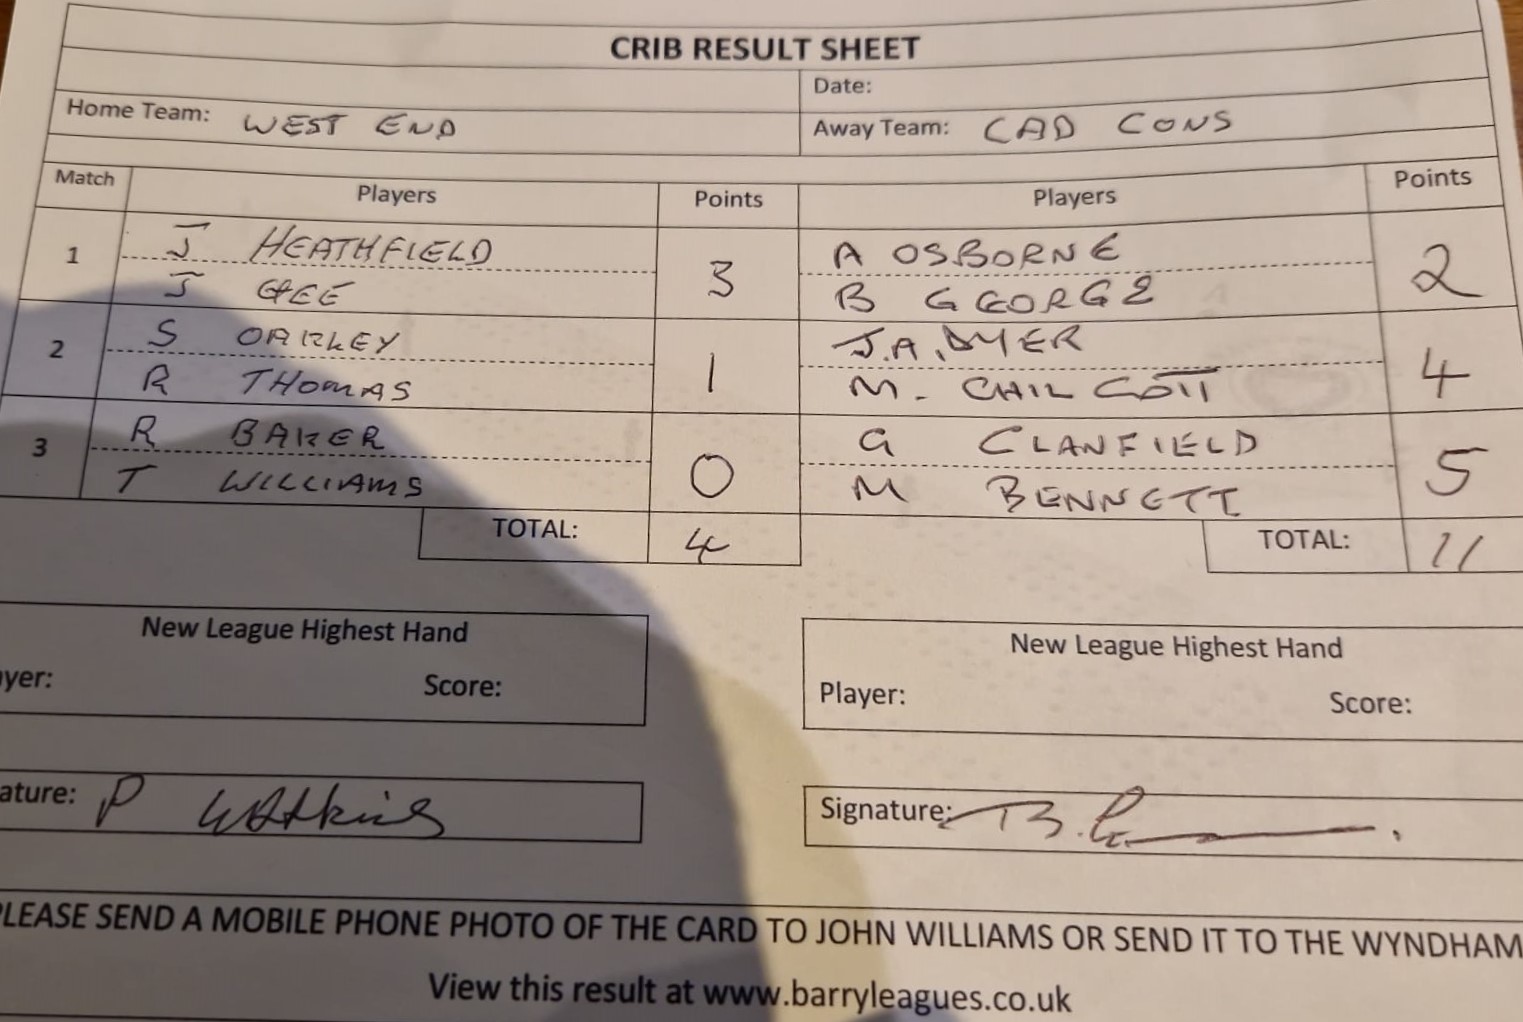 CRIB RESULT SHEET
Date:
Home Team: WEST END Away Team: CAD CONS
Match Players Points Players Points
1 J HEATHFIELD 3 A OSBORNE 2
J GEE B GEORGE
2 S OAKLEY 1 J.A. DYER 4
R THOMAS M. CHILCOTT
3 R BAKER 0 G CLANFIELD 5
T WILLIAMS M BENNETT
TOTAL: 4 TOTAL: 11
New League Highest Hand New League Highest Hand
yer: Score: Player: Score:
ature: P Watkins Signature: B.
LEASE SEND A MOBILE PHONE PHOTO OF THE CARD TO JOHN WILLIAMS OR SEND IT TO THE WYNDHAM
View this result at www.barryleagues.co.uk